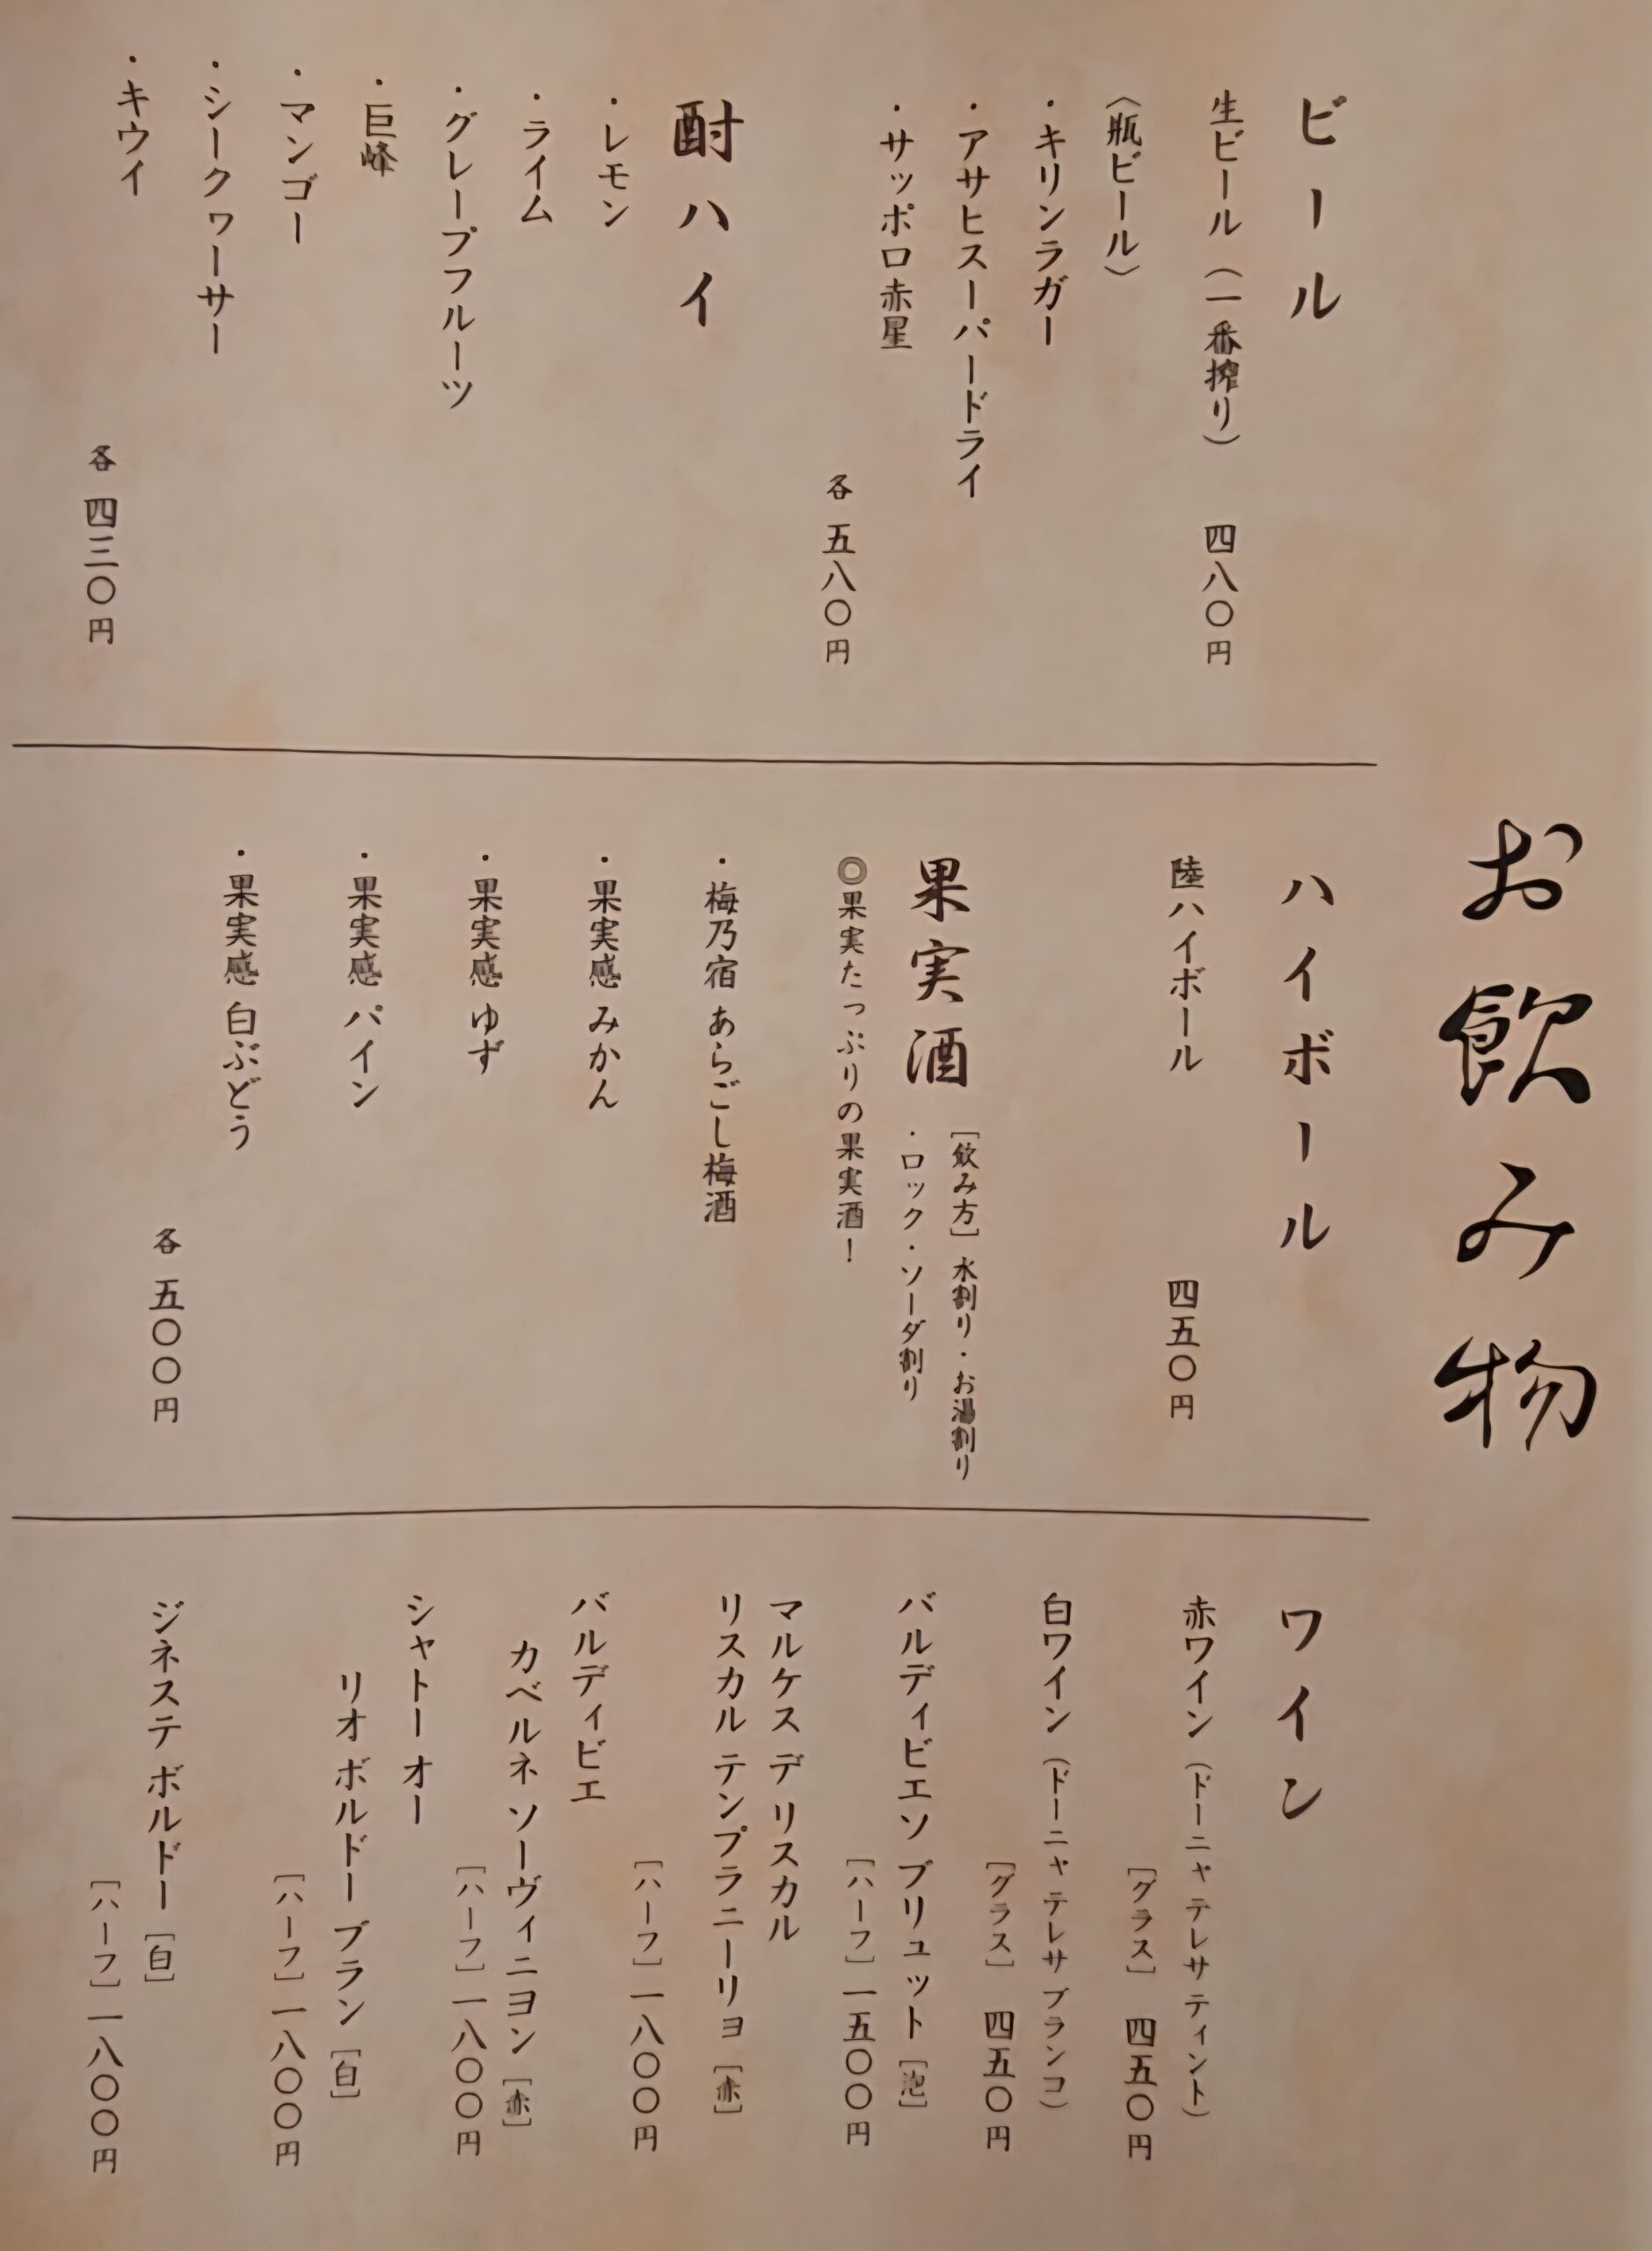 お飲み物
ビール
生ビール（一番搾り） 四八〇円
〈瓶ビール〉
・キリンラガー
・アサヒスーパードライ
・サッポロ赤星
各 五八〇円
酎ハイ
・レモン
・ライム
・グレープフルーツ
・巨峰
・マンゴー
・シークヮーサー
・キウイ
各 四三〇円
ハイボール
陸ハイボール 四五〇円
果実酒
［飲み方］水割り・お湯割り
・ロック・ソーダ割り
◎果実たっぷりの果実酒！
・梅乃宿 あらごし梅酒
・果実感 みかん
・果実感 ゆず
・果実感 パイン
・果実感 白ぶどう
各 五〇〇円
ワイン
赤ワイン（ドーニャ テレサ ティント）
［グラス］ 四五〇円
白ワイン（ドーニャ テレサ ブランコ）
［グラス］ 四五〇円
バルディビエソ ブリュット［泡］
［ハーフ］一五〇〇円
マルケス デ リスカル
リスカル テンプラニーリョ［赤］
［ハーフ］一八〇〇円
バルディビエ
カベルネ ソーヴィニヨン［赤］
［ハーフ］一八〇〇円
シャトー オー
リオ ボルドー ブラン［白］
［ハーフ］一八〇〇円
ジネステ ボルドー［白］
［ハーフ］一八〇〇円